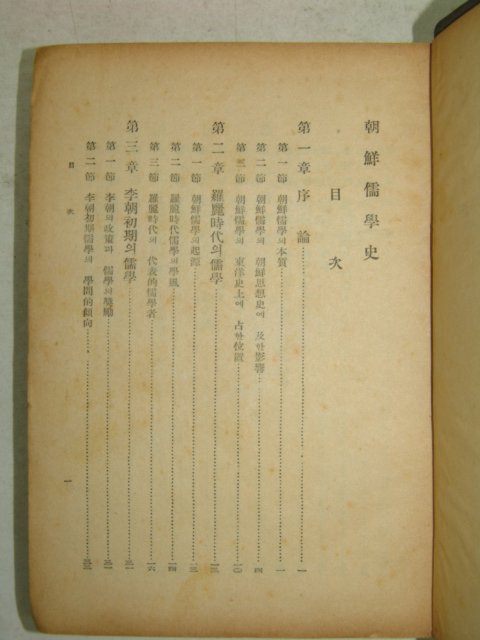 朝鮮儒學史
目次
第一章 序論 一
第一節 朝鮮儒學의 本質 一
第二節 朝鮮儒學의 朝鮮思想史에 及한 影響 四
第三節 朝鮮儒學의 東洋史上에 占한 位置 一〇
第二章 羅麗時代의 儒學 一三
第一節 朝鮮儒學의 起源 一三
第二節 羅麗時代儒學의 學風 一四
第三節 羅麗時代의 代表的儒學者 一六
第三章 李朝初期의 儒學
第一節 李朝의 政策과 儒學의 獎勵
第二節 李朝初期儒學의 學問的傾向
目次 一